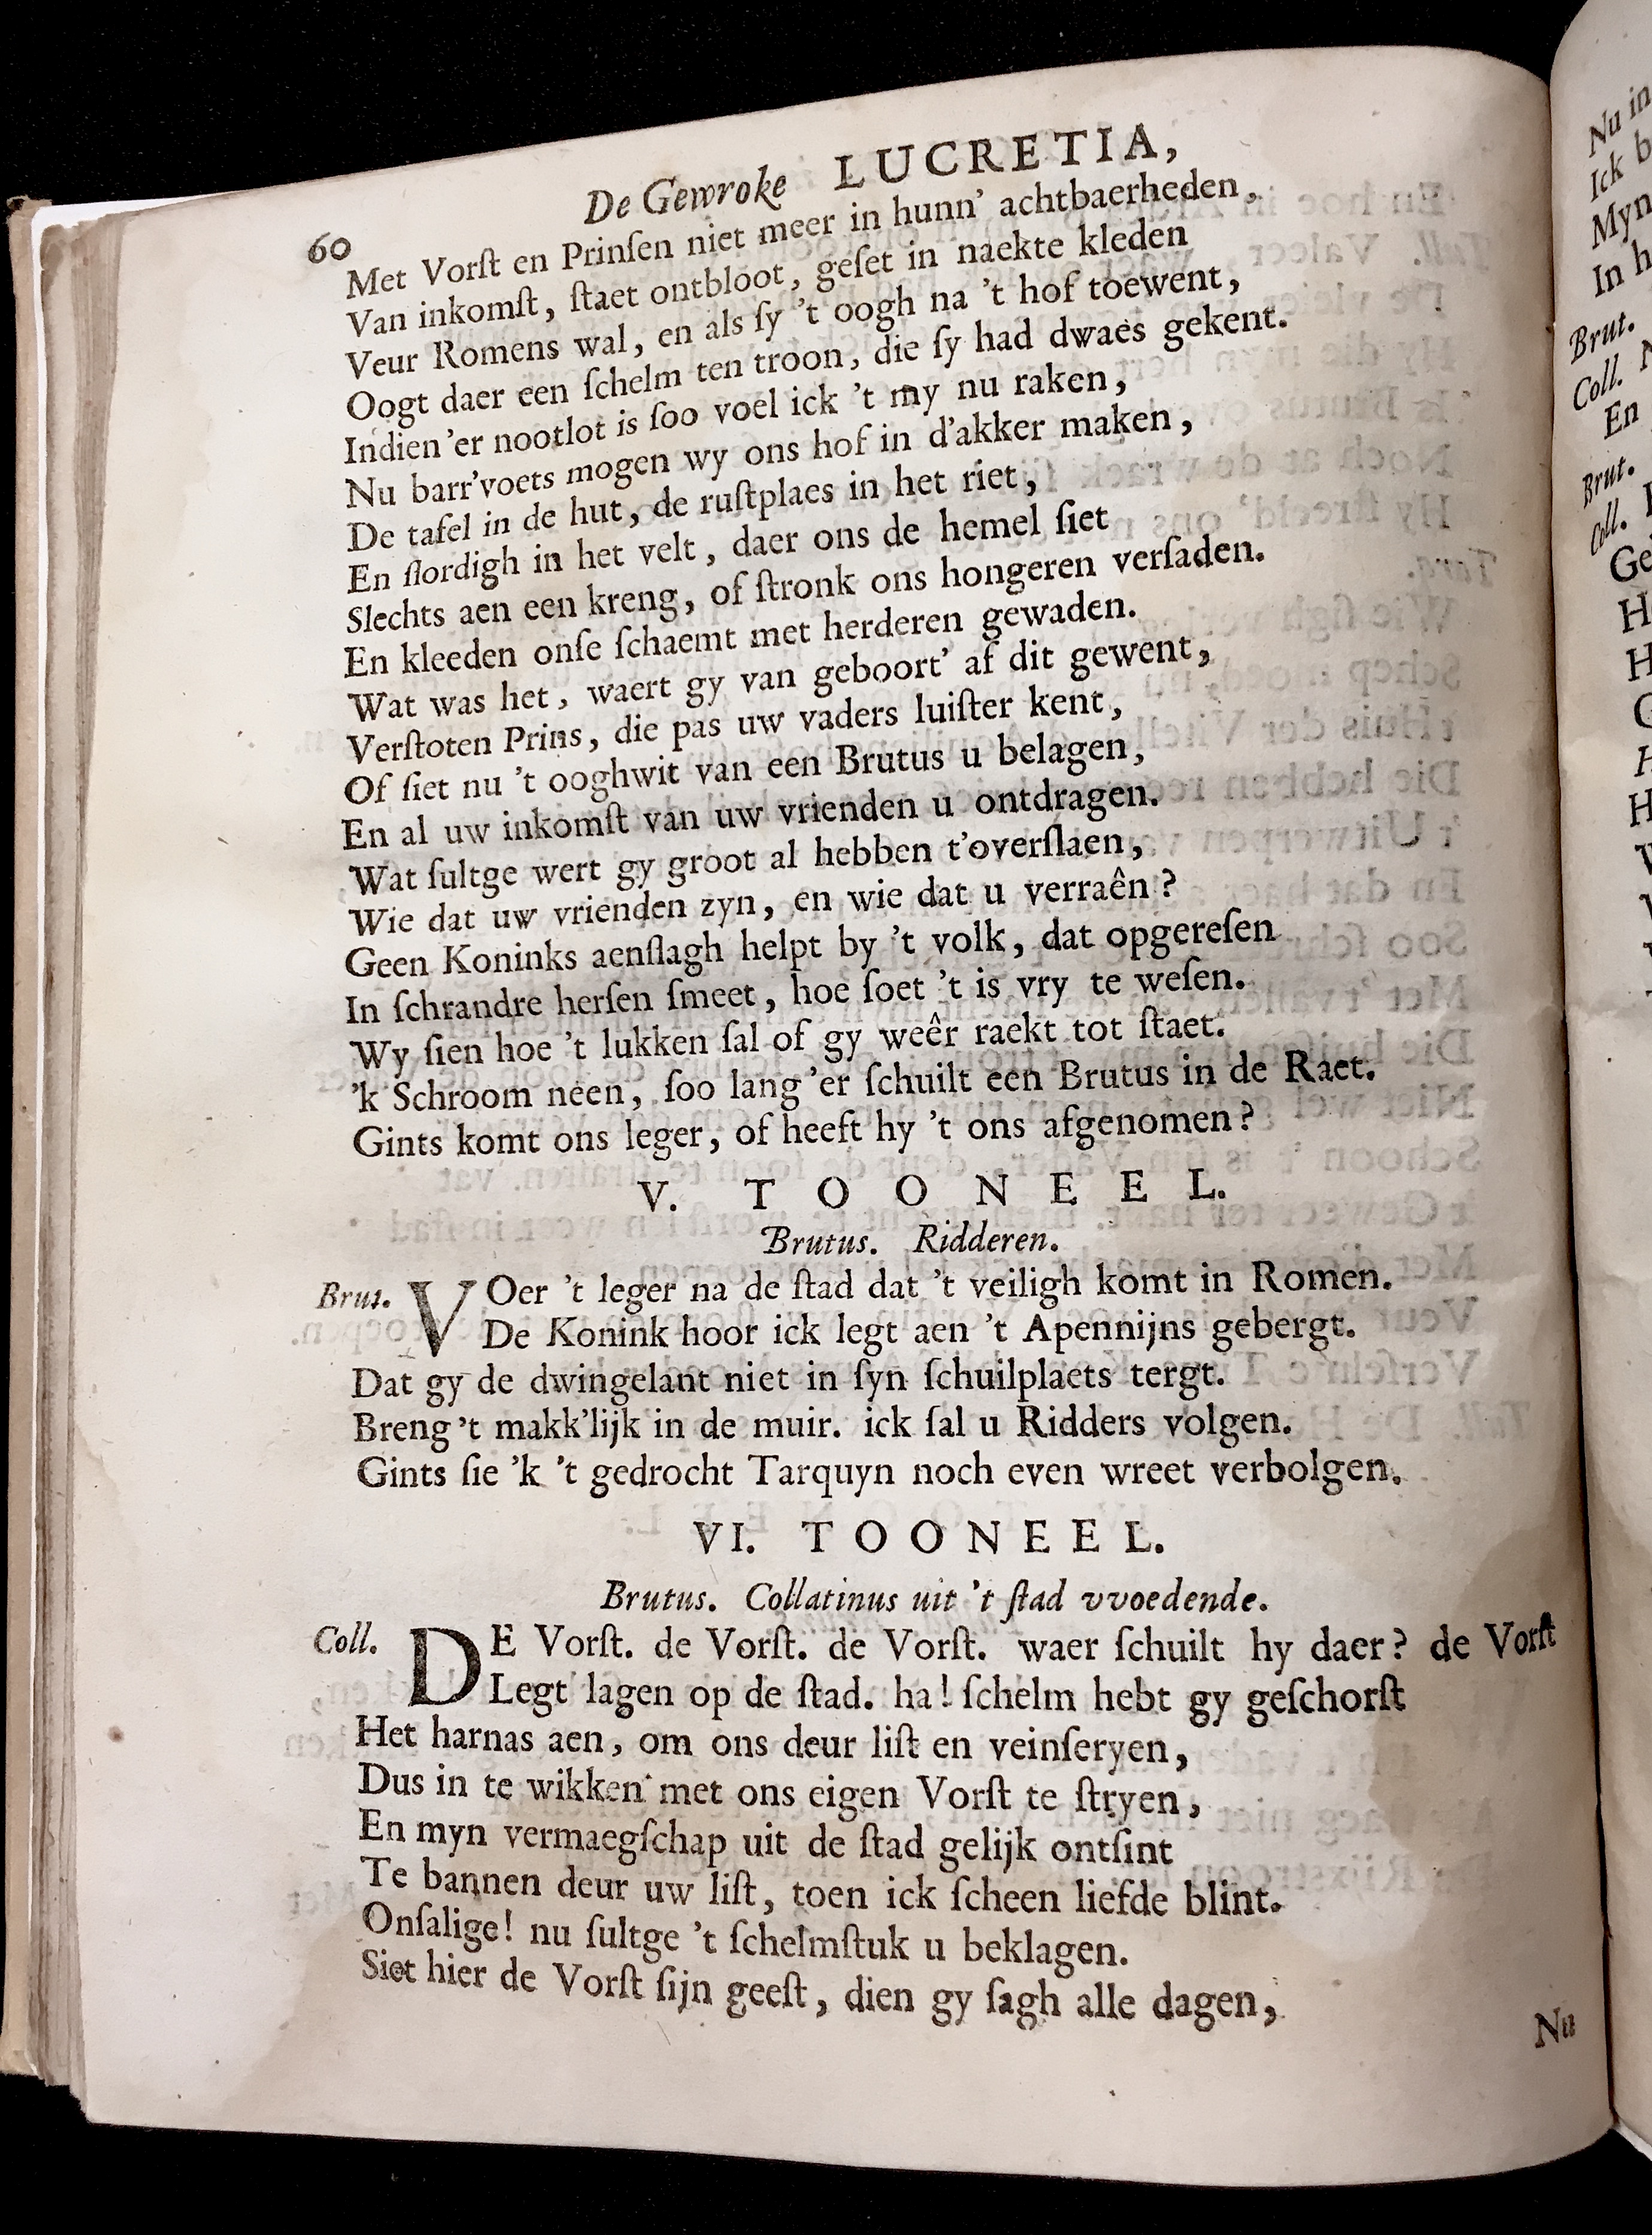 60 De Gewroke LUCRETIA,
Met Vorſt en Prinſen niet meer in hunn' achtbaerheden,
Van inkomſt, ſtaet ontbloot, geſet in naekte kleden
Veur Romens wal, en als ſy 't oogh na 't hof toewent,
Oogt daer een ſchelm ten troon, die ſy had dwaes gekent.
Indien 'er nootlot is ſoo voel ick 't my nu raken,
Nu barr'voets mogen wy ons hof in d'akker maken,
De tafel in de hut, de ruſtplaes in het riet,
En ſlordigh in het velt, daer ons de hemel ſiet
Slechts aen een kreng, of ſtronk ons hongeren verſaden.
En kleeden onſe ſchaemt met herderen gewaden.
Wat was het, waert gy van geboort' af dit gewent,
Verſtoten Prins, die pas uw vaders luiſter kent,
Of ſiet nu 't ooghwit van een Brutus u belagen,
En al uw inkomſt van uw vrienden u ontdragen.
Wat ſultge wert gy groot al hebben t'overſlaen,
Wie dat uw vrienden zyn, en wie dat u verraên?
Geen Koninks aenſlagh helpt by 't volk, dat opgereſen
In ſchrandre herſen ſmeet, hoe ſoet 't is vry te weſen.
Wy ſien hoe 't lukken ſal of gy weêr raekt tot ſtaet.
'k Schroom neen, ſoo lang 'er ſchuilt een Brutus in de Raet.
Gints komt ons leger, of heeft hy 't ons afgenomen?
V. TOONEEL.
Brutus. Ridderen.
Brut. VOer 't leger na de ſtad dat 't veiligh komt in Romen.
De Konink hoor ick legt aen 't Apennijns gebergt.
Dat gy de dwingelant niet in ſyn ſchuilplaets tergt.
Breng 't makk'lijk in de muir. ick ſal u Ridders volgen.
Gints ſie 'k 't gedrocht Tarquyn noch even wreet verbolgen.
VI. TOONEEL.
Brutus. Collatinus uit 't ſtad vvoedende.
Coll. DE Vorſt. de Vorſt. de Vorſt. waer ſchuilt hy daer? de Vorſt
Legt lagen op de ſtad. ha! ſchelm hebt gy geſchorſt
Het harnas aen, om ons deur liſt en veinſeryen,
Dus in te wikken met ons eigen Vorſt te ſtryen,
En myn vermaegſchap uit de ſtad gelijk ontſint
Te bannen deur uw liſt, toen ick ſcheen liefde blint.
Onſalige! nu ſultge 't ſchelmſtuk u beklagen.
Siet hier de Vorſt ſijn geeſt, dien gy ſagh alle dagen,
Nu
Nu in
Ick b
Myn
In h
Brut.
Coll.
En
Brut.
Coll.
Ge